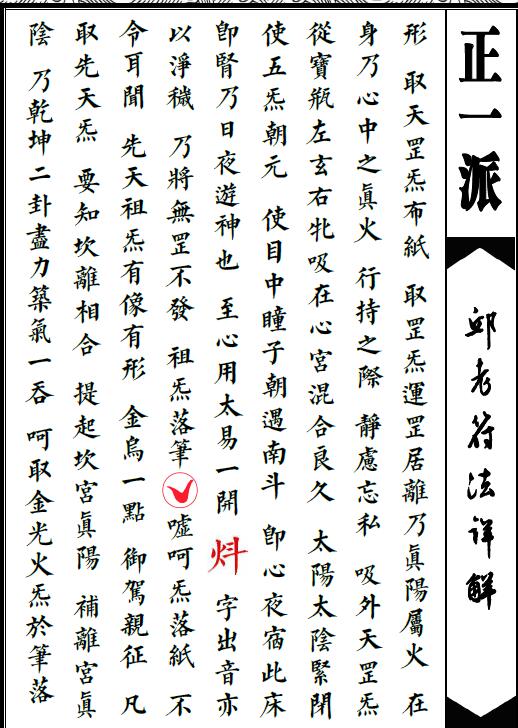 正一派
邱老符法详解
形 取天罡炁布紙 取罡炁運罡居離乃眞陽屬火 在
身乃心中之眞火 行持之際 靜慮忘私 吸外天罡炁
從寶瓶左玄右牝吸在心宮混合良久 太陽太陰緊閉
使五炁朝元 使目中瞳子朝遇南斗 卽心夜宿此床
卽腎乃日夜遊神也 至心用太易一開 炓 字出音亦
以淨穢 乃將無罡不發 祖炁落筆 噓呵炁落紙 不
令耳聞 先天祖炁有像有形 金烏一點 御駕親征 凡
取先天炁 要知坎離相合 提起坎宮眞陽 補離宮眞
陰 乃乾坤二卦盡力築氣一吞 呵取金光火炁於筆落